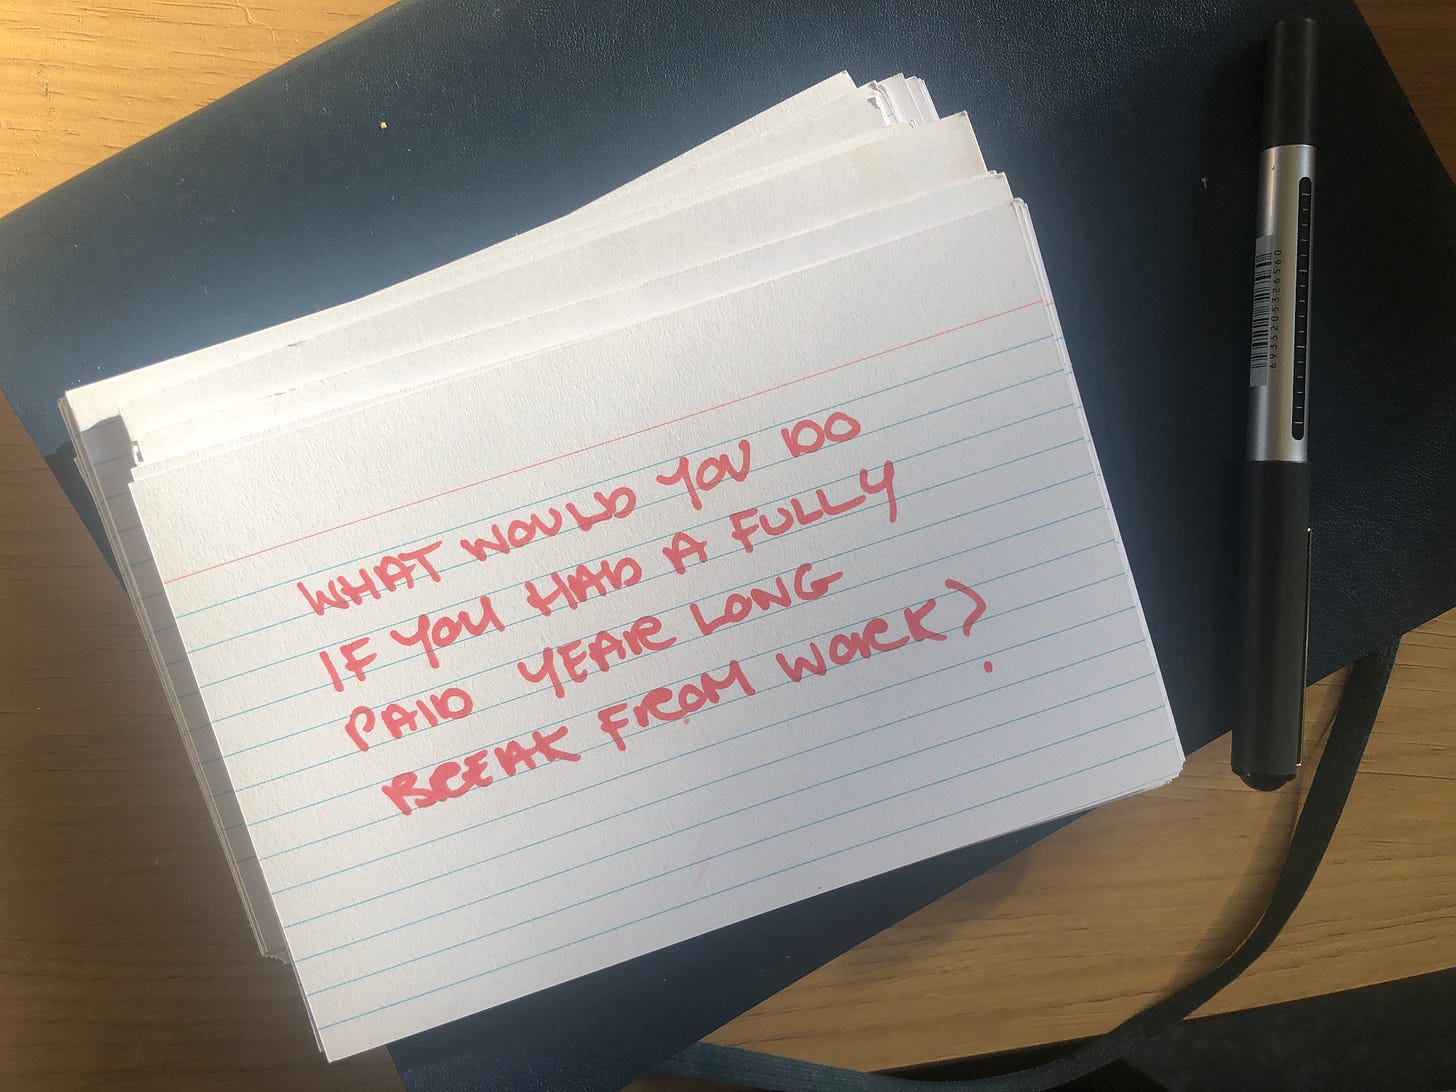 WHAT WOULD YOU DO
IF YOU HAD A FULLY
PAID YEAR LONG
BREAK FROM WORK?
6935205326560